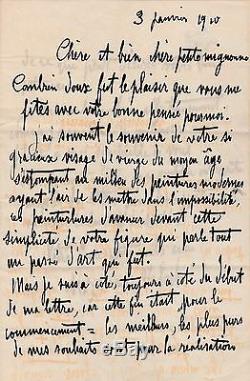 3 janvier 1910
Chère et bien chère petite mignonne
Combien doux fut le plaisir que vous me
fîtes avec votre bonne pensée pour moi.
J'ai souvent le souvenir de votre si
gracieux visage de vierge du moyen âge
s'estompant au milieu des peintures modernes
ayant l'air de les mettre dans l'impossibilité
ces peinturlures d'avancer devant cette
simplicité de votre figure qui parle tout
un passé d'art qui fut.
Mais je vais à côté, toujours à côté du début
de ma lettre, car cette fin était pour le
commencement = les meilleurs, les plus purs
de mes souhaits sont pour la réalisation